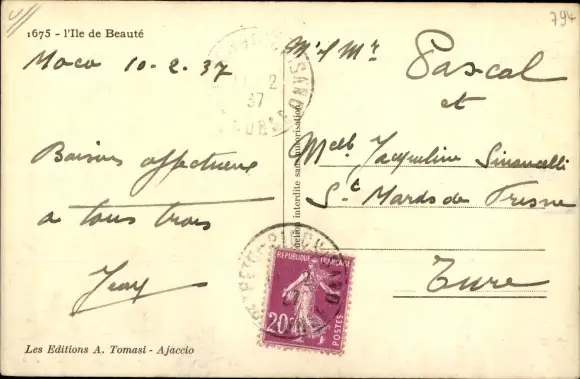 794
1675 - l'Ile de Beauté
Moco 10-2-37
Baisers affectueux
a tous trois
Jean
Les Editions A. Tomasi - Ajaccio
interdite sans autorisation
M. & Mr
Pascal
et
Melle Jacqueline
St Mards de Fresne
Eure
REPUBLIQUE FRANÇAISE
20c
POSTES
2
37
CORSE